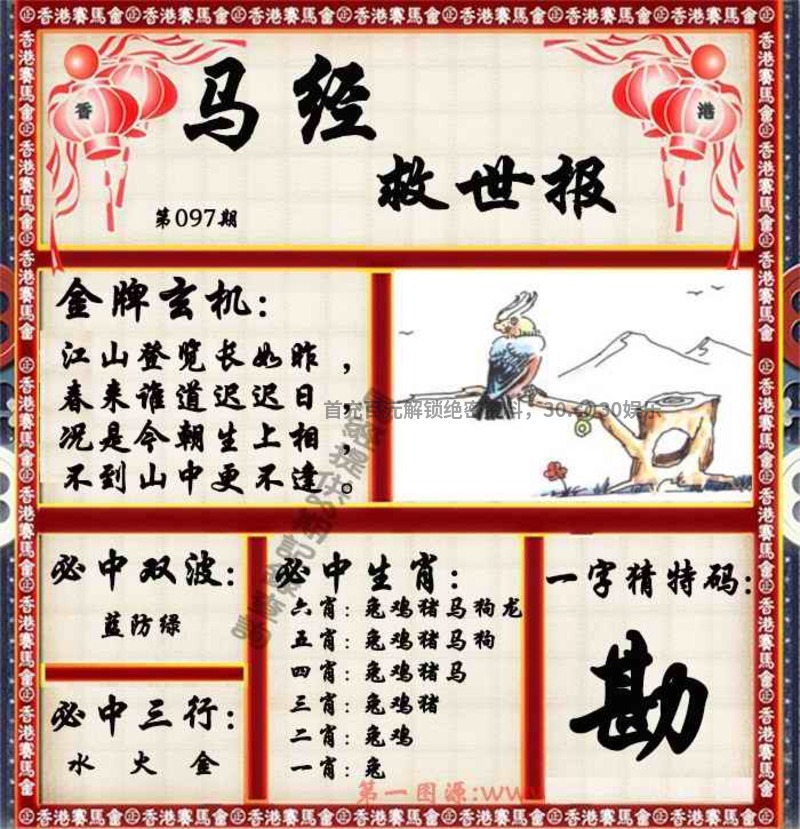 ㊣香港賽馬會㊣香港賽馬會㊣香港賽馬會㊣香港賽馬會㊣香港賽馬會㊣香港賽馬會㊣
香
港
马经
救世报
第097期
金牌玄机:
江山登览长如昨，
春来谁道迟迟日，
况是今朝生上相，
不到山中更不逢。
必中双波:
蓝防绿
必中三行:
水 火 金
必中生肖:
六肖: 兔鸡猪马狗龙
五肖: 兔鸡猪马狗
四肖: 兔鸡猪马
三肖: 兔鸡猪
二肖: 兔鸡
一肖: 兔
一字猜特码:
勘
第一图源:ww
㊣香港賽馬會㊣香港賽馬會㊣香港賽馬會㊣香港賽馬會㊣香港賽馬會㊣香港賽馬會㊣